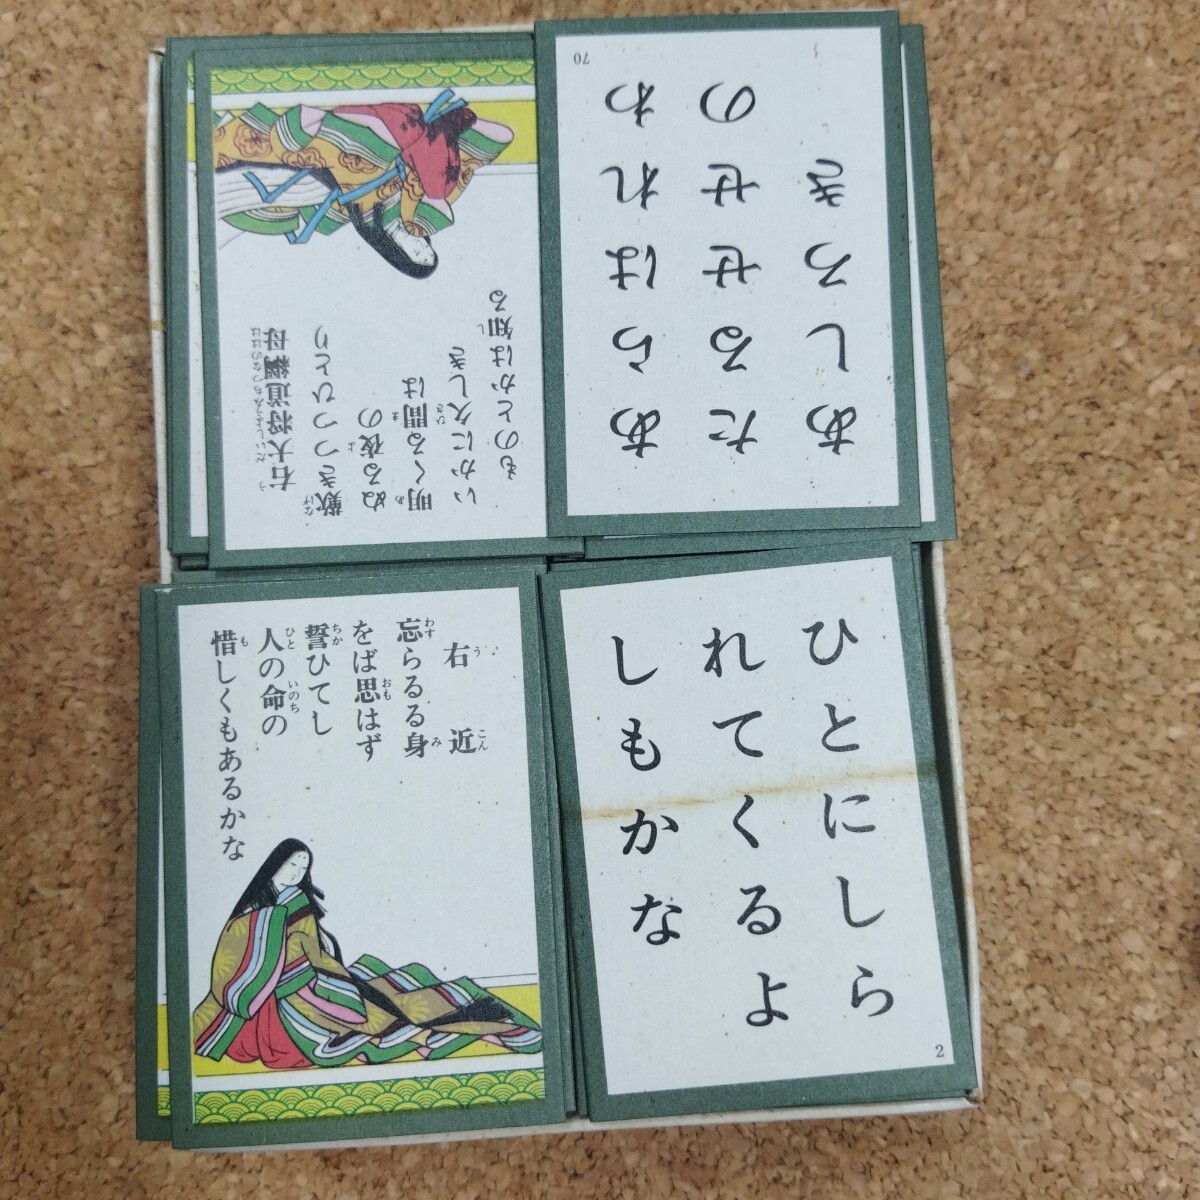 右大将道綱母
歎きつつひとり
ぬる夜の
明くる間は
いかに久しき
ものとかは知る
あらはれわ
たるせせの
あしろき
70
右近
忘らるる身
をば思はず
誓ひてし
人の命の
惜しくもあるかな
ひとにしら
れてくるよ
しもかな
2